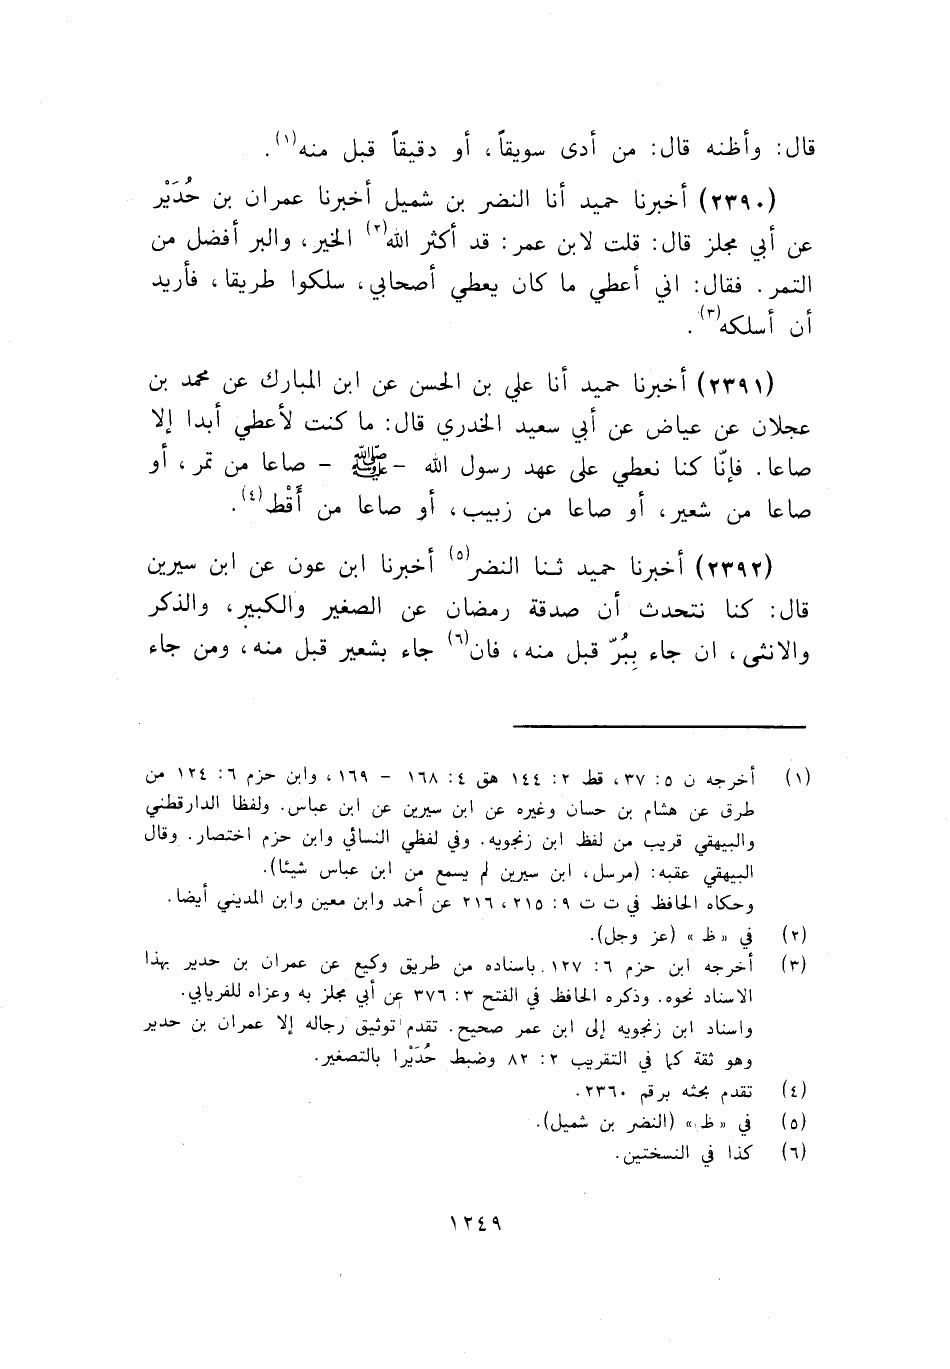 قال: وأظنه قال: من أدى سويقاً، أو دقيقاً قبل منه(١).
(٢٣٩٠) أخبرنا حميد أنا النضر بن شميل أخبرنا عمران بن حُدَيْر
عن أبي مجلز قال: قلت لابن عمر: قد أكثر الله(٢) الخير، والبر أفضل من
التمر. فقال: اني أعطي ما كان يعطي أصحابي، سلكوا طريقا، فأريد
أن أسلكه(٣).
(٢٣٩١) أخبرنا حميد أنا علي بن الحسن عن ابن المبارك عن محمد بن
عجلان عن عياض عن أبي سعيد الخدري قال: ما كنت لأعطي أبدا إلا
صاعا. فإنّا كنا نعطي على عهد رسول الله -ﷺ- صاعا من تمر، أو
صاعا من شعير، أو صاعا من زبيب، أو صاعا من أَقْط(٤).
(٢٣٩٢) أخبرنا حميد ثنا النضر(٥) أخبرنا ابن عون عن ابن سيرين
قال: كنا نتحدث أن صدقة رمضان عن الصغير والكبير، والذكر
والانثى، ان جاء بِبُرّ قبل منه، فان(٦) جاء بشعير قبل منه، ومن جاء
(١) أخرجه ن ٥: ٣٧، قط ٢: ١٤٤ هق ٤: ١٦٨ - ١٦٩، وابن حزم ٦: ١٢٤ من
طرق عن هشام بن حسان وغيره عن ابن سيرين عن ابن عباس. ولفظا الدارقطني
والبيهقي قريب من لفظ ابن زنجويه. وفي لفظي النسائي وابن حزم اختصار. وقال
البيهقي عقبه: (مرسل، ابن سيرين لم يسمع من ابن عباس شيئا).
وحكاه الحافظ في ت ت ٩: ٢١٥، ٢١٦ عن أحمد وابن معين وابن المديني أيضا.
(٢) في «ظ» (عز وجل).
(٣) أخرجه ابن حزم ٦: ١٢٧ باسناده من طريق وكيع عن عمران بن حدير بهذا
الاسناد نحوه. وذكره الحافظ في الفتح ٣: ٣٧٦ عن أبي مجلز به وعزاه للفريابي.
واسناد ابن زنجويه إلى ابن عمر صحيح. تقدم توثيق رجاله إلا عمران بن حدير
وهو ثقة كما في التقريب ٢: ٨٢ وضبط حُدَيْرا بالتصغير.
(٤) تقدم بحثه برقم ٢٣٦٠.
(٥) في «ظ» (النضر بن شميل).
(٦) كذا في النسختين.
١٢٤٩